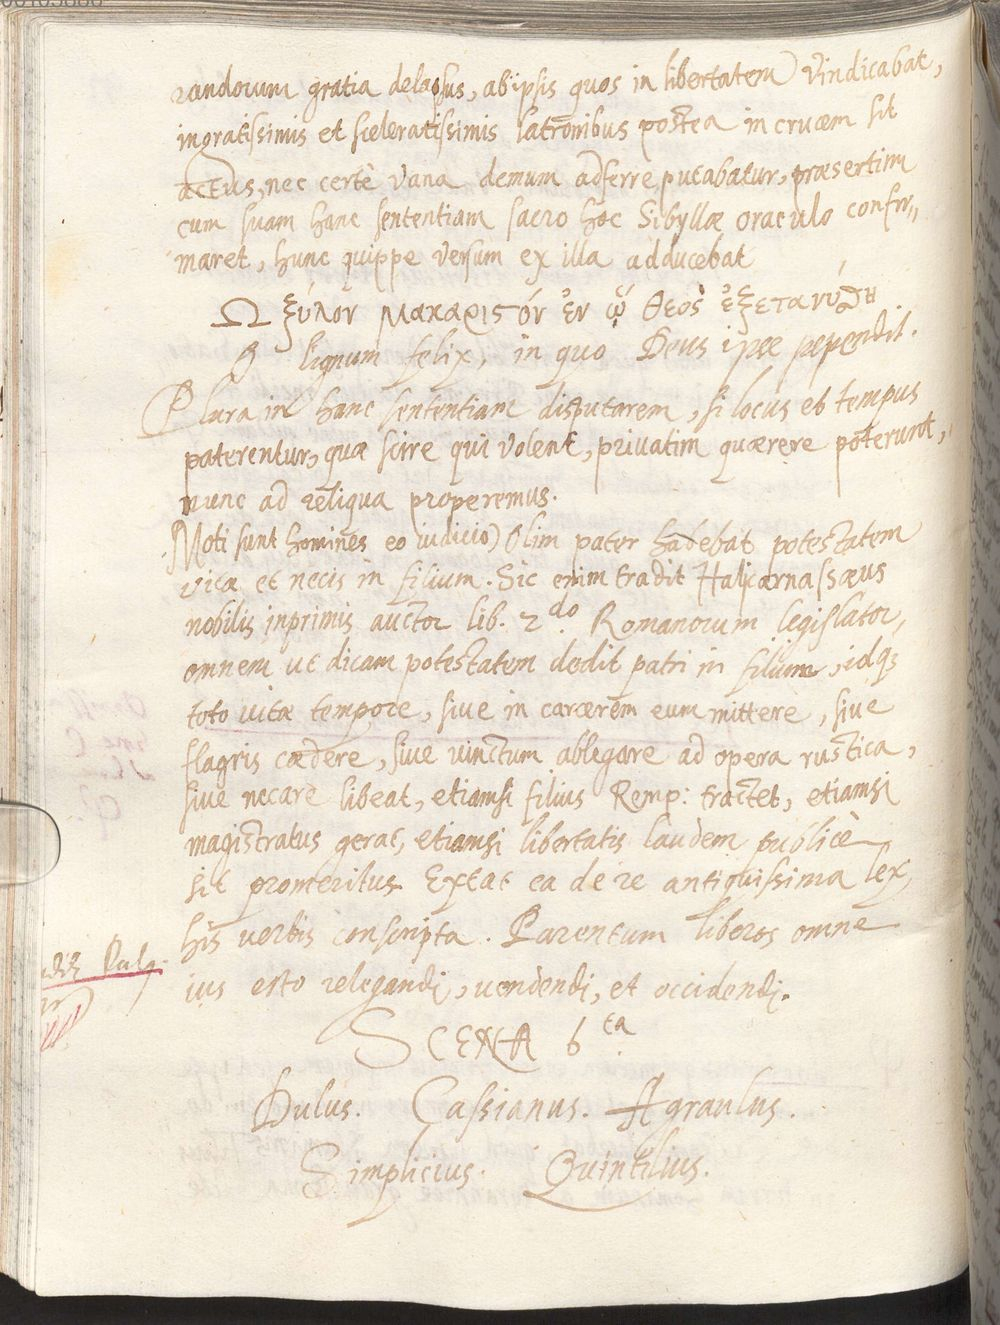 randorum gratia delapsus, ab ipsis quos in libertatem vindicabat,
ingratissimis et sceleratissimis latronibus postea in crucem sit
actus, nec certè vana demum adferre putabatur, præsertim
cum suam hanc sententiam sacro hoc Sibyllæ oraculo confir,,
maret, hunc quippe versum ex illa adducebat
Ω ξύλον μακαριστόν ἐν ᾧ θεὸς ἐξετανύσθη.
O lignum felix, in quo Deus ipse pependit.
Plura in hanc sententiam disputarem, si locus et tempus
paterentur, quæ scire qui volent, privatim quærere poterunt,
nunc ad reliqua properemus.
Moti sunt homines eo iudicio) Olim pater habebat potestatem
vitæ et necis in filium. Sic enim tradit Halicarnassæus
nobilis inprimis auctor lib. 2.do Romanorum legislator,
omnem ut dicam potestatem dedit patri in filium, idq;
toto vitæ tempore, sive in carcerem eum mittere, sive
flagris cædere, sive vinctum ablegare ad opera rustica,
sive necare libeat, etiamsi filius Remp: tractet, etiamsi
magistratus gerat, etiamsi libertatis laudem publicè
sit promeritus. Extat ea de re antiquissima lex
his verbis conscripta. Parentum liberos omne
ius esto relegandi, vendendi, et occidendi.
SCENA 6.ta
Dulus. Cassianus. Agraulus.
Simplicius. Quintilius.